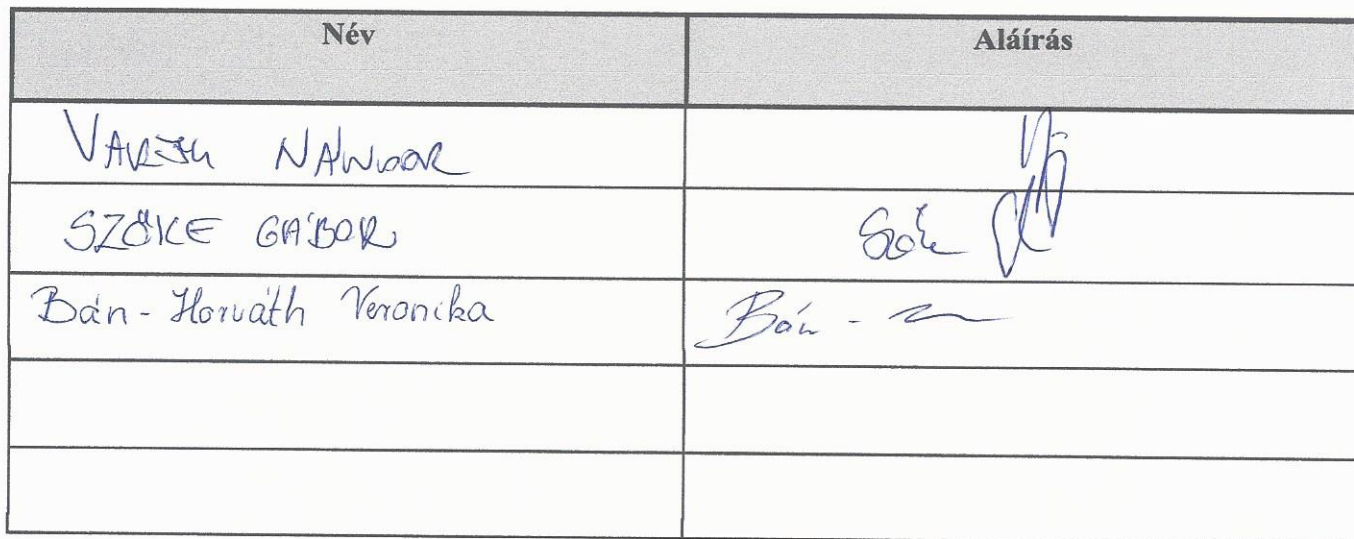 Név Aláírás
VARJU NÁNDOR
SZŐKE GÁBOR Szőke
Bán-Horváth Veronika Bán -